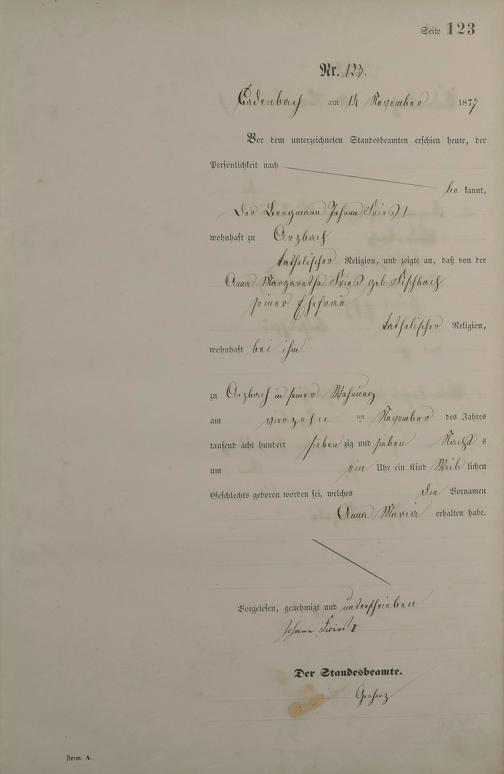 Seite 123
Nr. 123.
Cadenbach am 14 November 1877
Vor dem unterzeichneten Standesbeamten erschien heute, der
Persönlichkeit nach
be kannt,
der Bergmann Johann
wohnhaft zu Arzbach
katholischer Religion, und zeigte an, daß von der
Anna Margaretha geb Fischbach
seiner Ehefrau
katholischer Religion,
wohnhaft bei ihm
zu Arzbach in seiner Wohnung
am vierzehn ten November des Jahres
tausend acht hundert sieben zig und sieben Nachts
um ein Uhr ein Kind Weib lichen
Geschlechts geboren worden sei, welches die Vornamen
Anna Maria erhalten habe.
Vorgelesen, genehmigt und unterschrieben
Johann
Der Standesbeamte.
Form. A.